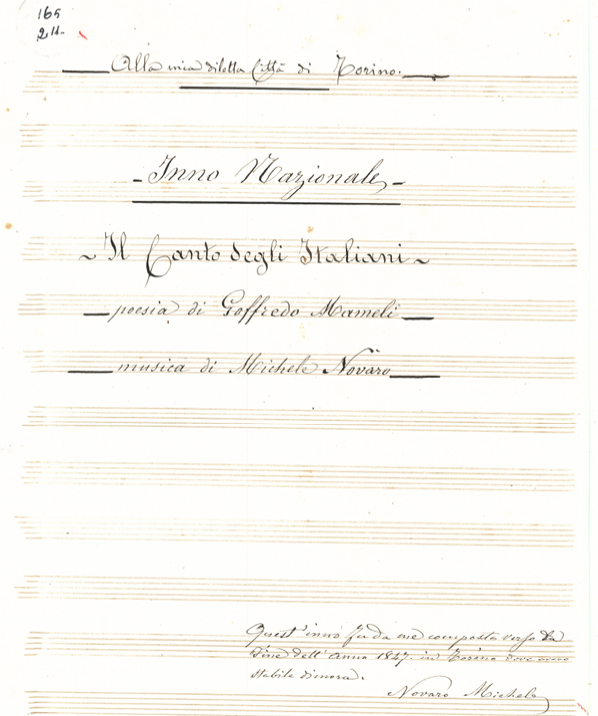 165
Alla mia diletta Città di Torino.
Inno Nazionale
Il Canto degli Italiani
poesia di Goffredo Mameli
musica di Michele Novaro
Quest'inno fu da me composto verso la
fine dell'Anno 1847. in Torino dove avevo
stabile dimora.
Novaro Michele